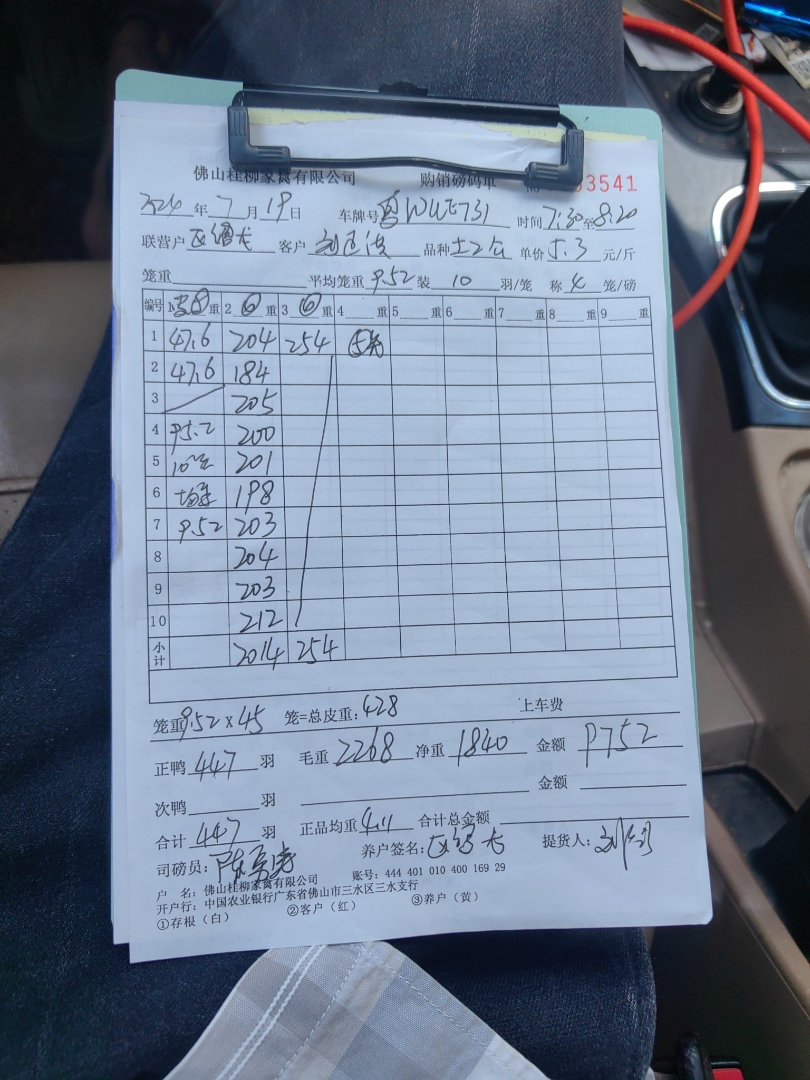 佛山桂柳家禽有限公司 购销磅码单 3541
2024年 7月 19日 车牌号 粤WWE731 时间 7:30至8:20
联营户 客户 品种 土2 单价 5.3 元/斤
笼重 平均笼重 9.52 装 10 羽/笼 称 4 笼/磅
编号 1 重 2 ⑥ 重 3 ⑥ 重 4 重 5 重 6 重 7 重 8 重 9 重
1 47.6 204 254
2 47.6 184
3 205
4 95.2 200
5 10 201
6 198
7 9.52 203
8 204
9 203
10 212
小计 2014 254
笼重 9.52 x 45 笼=总皮重: 428 上车费
正鸭 447 羽 毛重 2268 净重 1840 金额 9752
次鸭 羽 金额
合计 447 羽 正品均重 4.11 合计总金额
司磅员: 养户签名: 提货人:
户 名: 佛山桂柳家禽有限公司 账号: 444 401 010 400 169 29
开户行: 中国农业银行广东省佛山市三水区三水支行
①存根(白) ②客户(红) ③养户(黄)